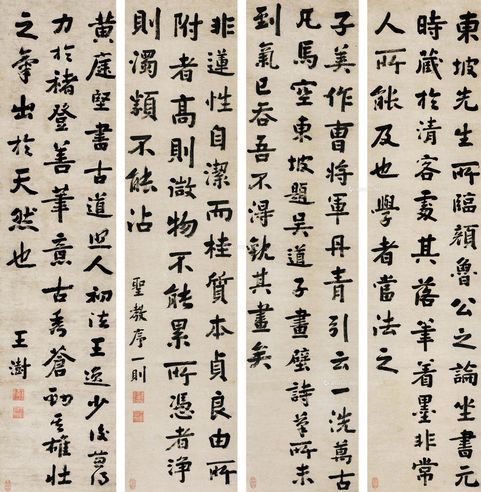 東坡先生所臨顏魯公之論坐書元
時藏於清客處其落筆着墨非常
人所能及也學者當法之
子美作曹將軍丹青引云一洗萬古
凡馬空東坡題吳道子畫壁詩筆所未
到氣已吞吾不得其畫矣
非蓮性自潔而桂質本貞良由所
附者高則微物不能累所憑者淨
則濁類不能沾
聖教序一則
黃庭堅書古道照人初法王逸少後得
力於褚登善筆意古秀蒼勁其雄壯
之氣出於天然也
王澍